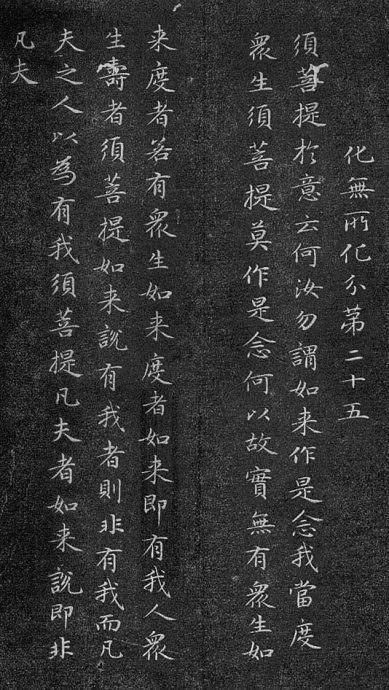 化無所化分第二十五
須菩提於意云何汝勿謂如来作是念我當度
衆生須菩提莫作是念何以故實無有衆生如
来度者若有衆生如来度者如来即有我人衆
生壽者須菩提如来說有我者則非有我而凡
夫之人以為有我須菩提凡夫者如来說即非
凡夫